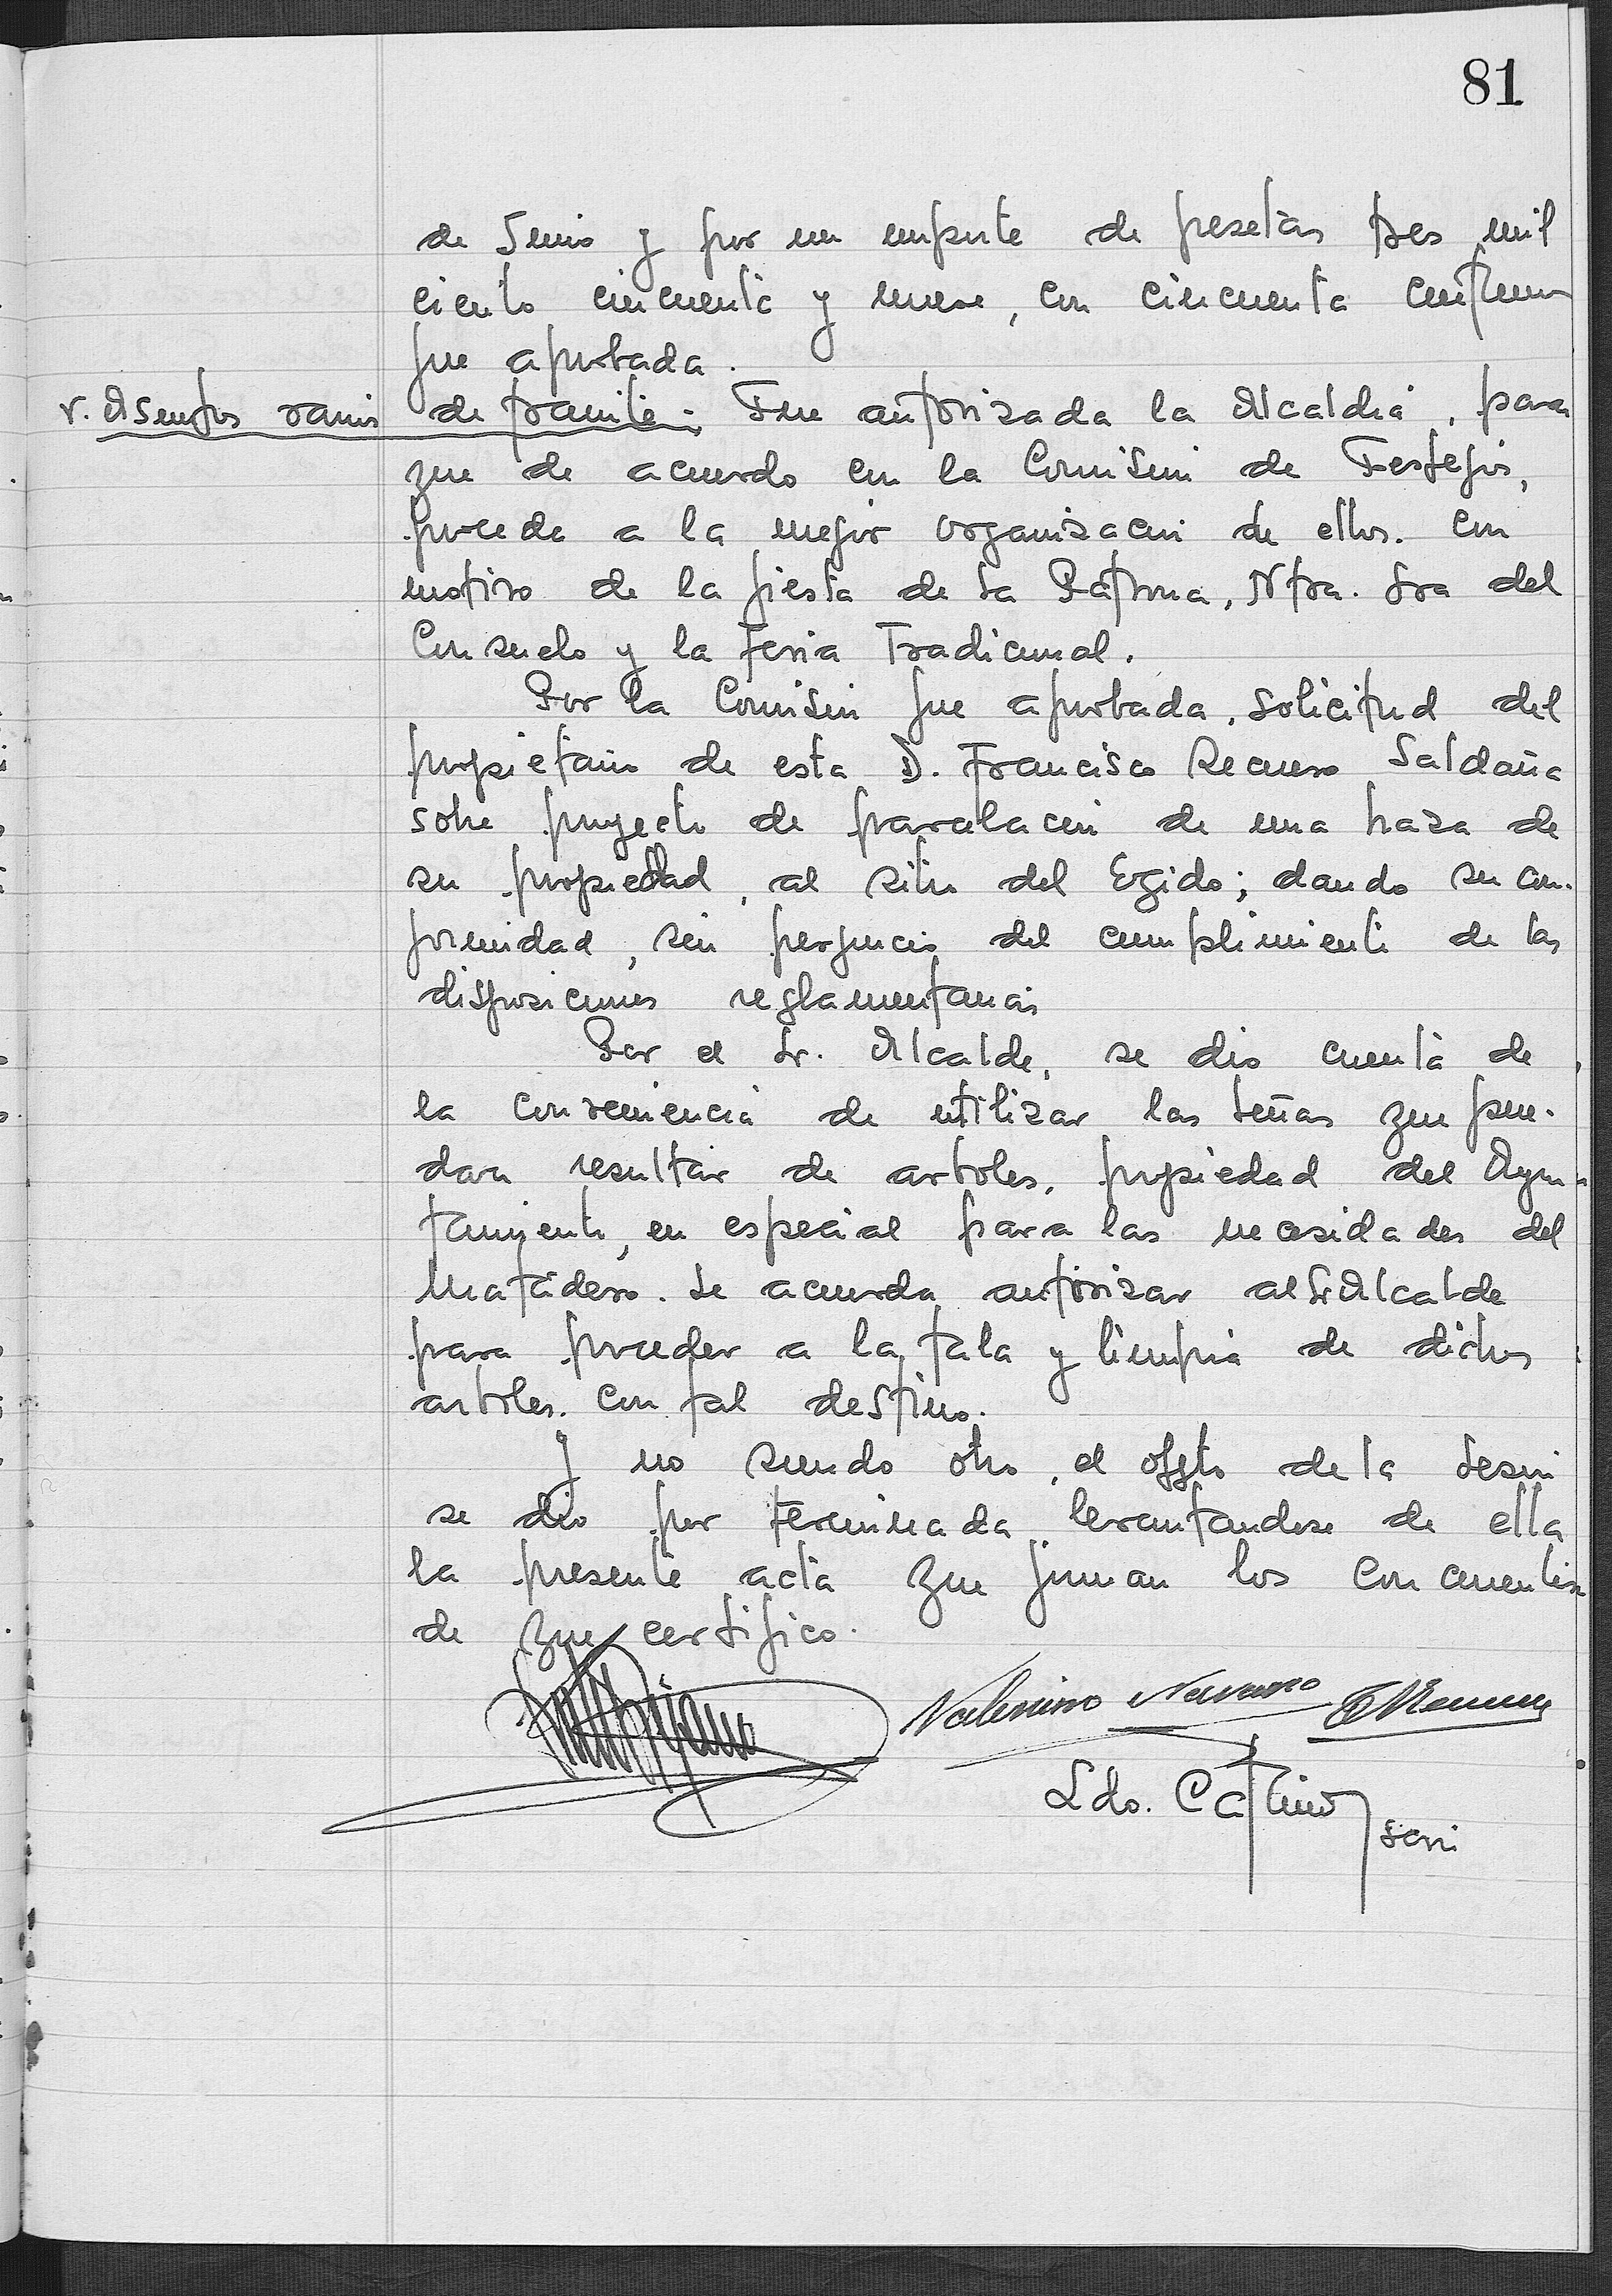 81
de Junio y por un importe de pesetas tres mil
ciento cincuenta y nueve, con cincuenta centimos
fue aprobada.
r. Asuntos varios de tramite.- Fue autorizada la Alcaldia, para
que de acuerdo con la Comision de Festejos,
proceda a la mejor organizacion de ellos. con
motivo de la fiesta de la Patrona, Ntra. Sra del
Consuelo y la Feria Tradicional.
Por la Comision fue aprobada, solicitud del
propietario de esta D. Francisco Recuero Saldaña
sobre proyecto de parcelacion de una haza de
su propiedad, al sitio del Egido; dando su con-
formidad, sin perjuicio del cumplimiento de las
disposiciones reglamentarias
Por el Sr. Alcalde, se dio cuenta de
la conveniencia de utilizar las leñas que pue-
dan resultar de arboles, propiedad del Ayun-
tamiento, en especial para las necesidades del
Matadero. Se acuerda autorizar al Sr Alcalde
para proceder a la tala y limpia de dichos
arboles. con tal destino.
Y no siendo otro, el objeto de la sesion
se dio por terminada levantandose de ella
la presente acta que firman los concurrentes
de que certifico.
Valeriano Navarro
Ldo.